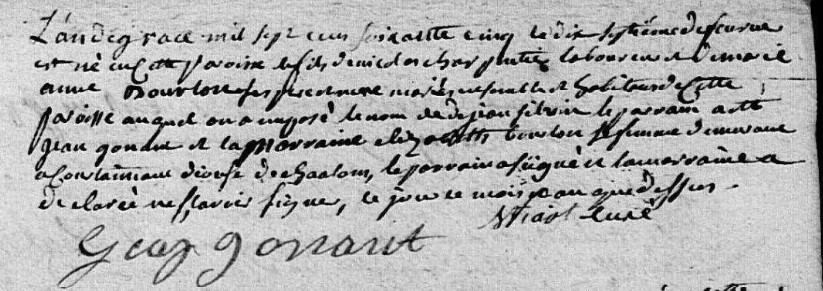 L'an de grace mil sept cens soixante cinq le dix septieme de fevrier
est né en cette paroise le fils de nicolas charpentier laboureur et de marie
anne Bourlon ses pere et mere mariés ensemble et habitans de cette
paroisse auquel on a imposé le nom de de jean le parrain a eté
jean gonant et la marraine elizabeth bourlon sa femme demeurans
a diocese de chaalons, le parrain a signé et la marraine a
declaré ne scavoir signer, ce jour ce mois et an que dessus.
curé
Gean gonant